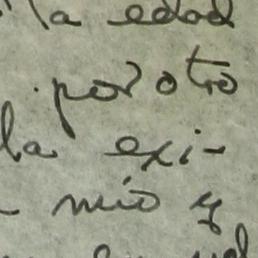 la edad
por otro
la exi-
- mio y